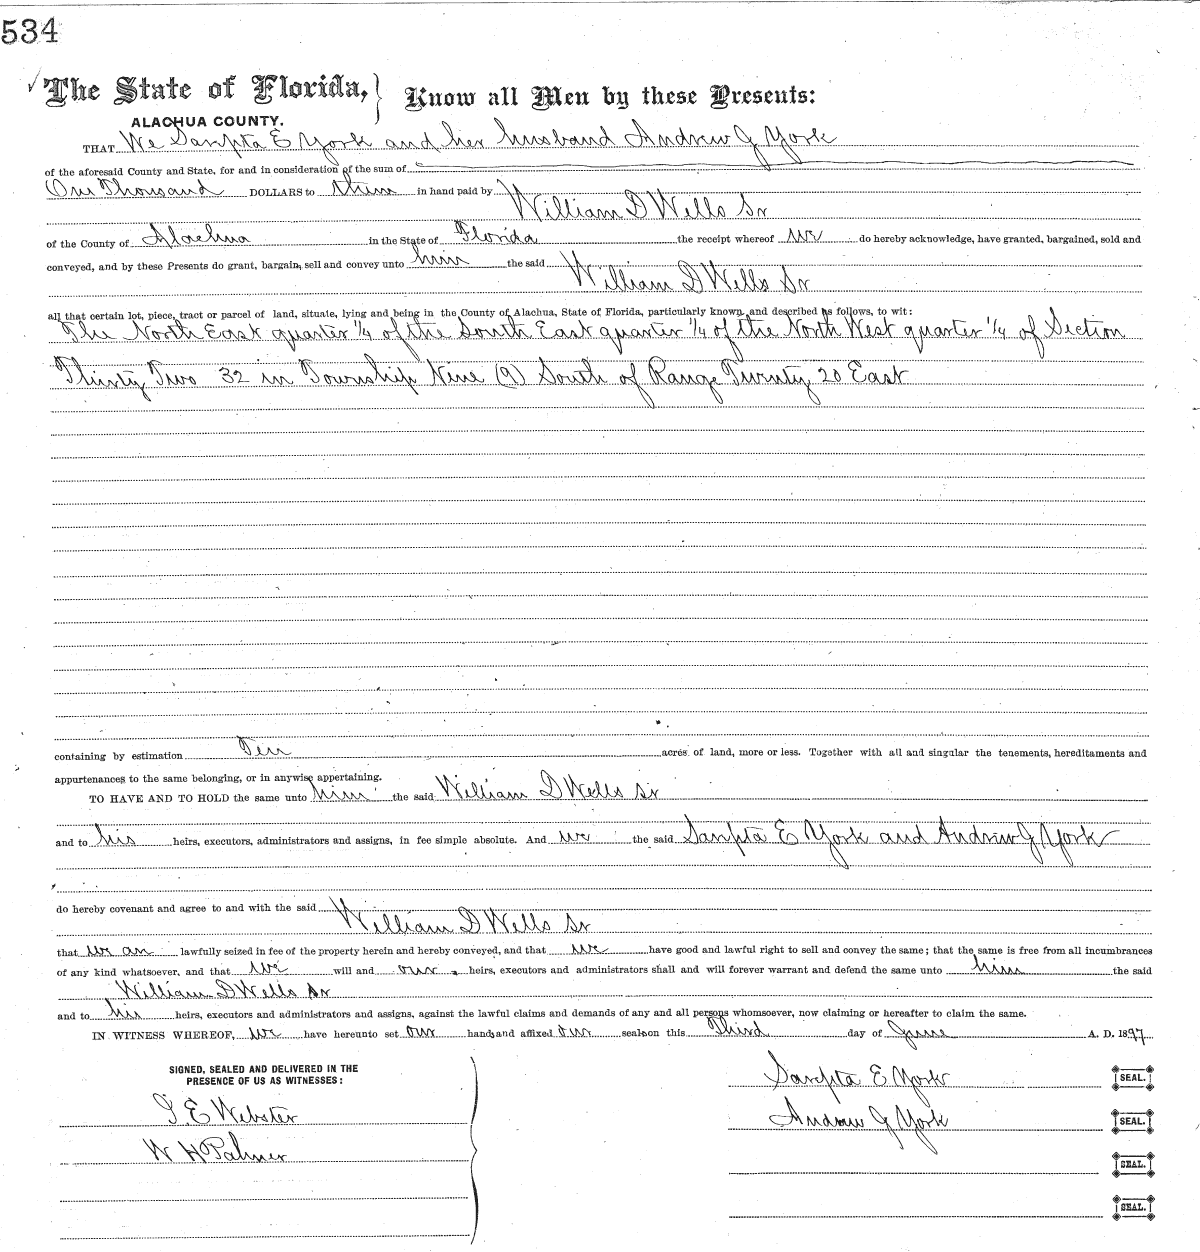 534
The State of Florida, } Know all Men by these Presents:
ALACHUA COUNTY.
THAT We Sarepta E York and her husband Andrew J York
of the aforesaid County and State, for and in consideration of the sum of
One Thousand DOLLARS to them in hand paid by William D Wells Sr
of the County of Alachua in the State of Florida the receipt whereof we do hereby acknowledge, have granted, bargained, sold and
conveyed, and by these Presents do grant, bargain, sell and convey unto him the said William D Wells Sr
all that certain lot, piece, tract or parcel of land, situate, lying and being in the County of Alachua, State of Florida, particularly known and described as follows, to wit:
The North East quarter 1/4 of the South East quarter 1/4 of the North West quarter 1/4 of Section
Thirty Two 32 in Township Nine (9) South of Range Twenty 20 East
containing by estimation Ten acres of land, more or less. Together with all and singular the tenements, hereditaments and
appurtenances to the same belonging, or in anywise appertaining.
TO HAVE AND TO HOLD the same unto him the said William D Wells Sr
and to his heirs, executors, administrators and assigns, in fee simple absolute. And we the said Sarepta E York and Andrew J York
do hereby covenant and agree to and with the said William D Wells Sr
that we are lawfully seized in fee of the property herein and hereby conveyed, and that we have good and lawful right to sell and convey the same; that the same is free from all incumbrances
of any kind whatsoever, and that we will and our heirs, executors and administrators shall and will forever warrant and defend the same unto him the said
William D Wells Sr
and to his heirs, executors and administrators and assigns, against the lawful claims and demands of any and all persons whomsoever, now claiming or hereafter to claim the same.
IN WITNESS WHEREOF, we have hereunto set our hands and affixed our seals on this Third day of June A. D. 1897
SIGNED, SEALED AND DELIVERED IN THE
PRESENCE OF US AS WITNESSES:
Sarepta E York SEAL.
I E Webster
Andrew J York SEAL.
W H Palmer
SEAL.
SEAL.